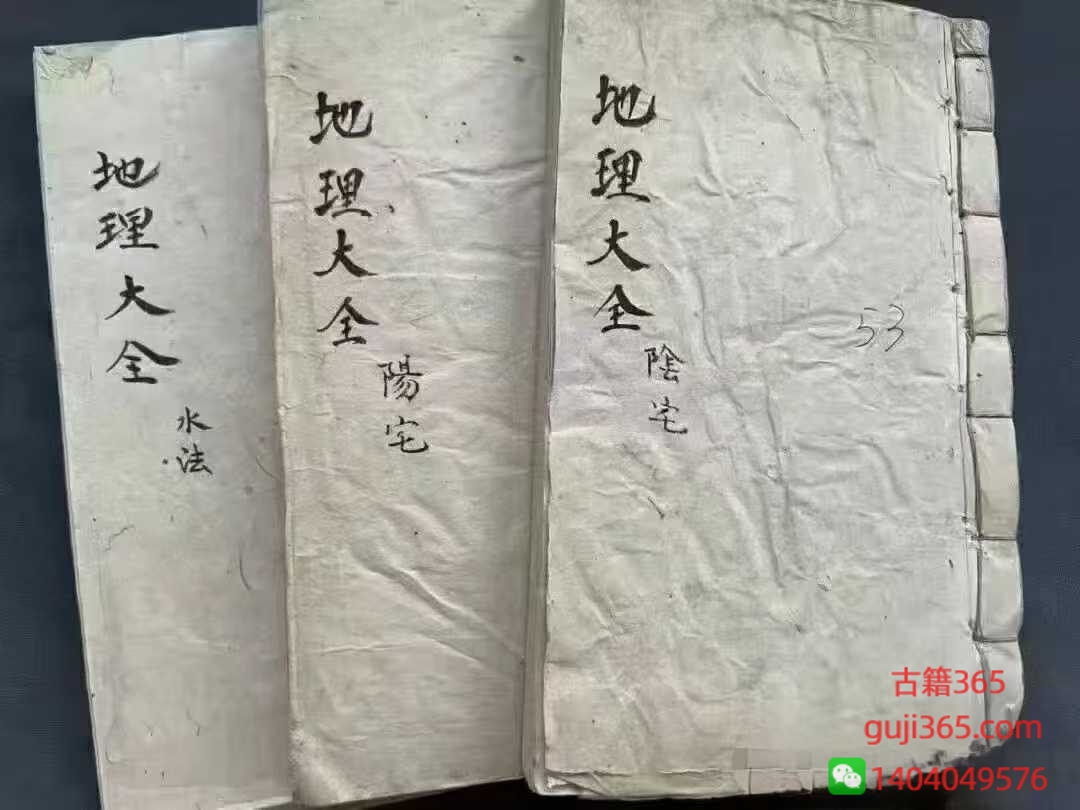 地理大全
陰宅
53
地理大全
陽宅
地理大全
水法
古籍365
guji365.com
1404049576